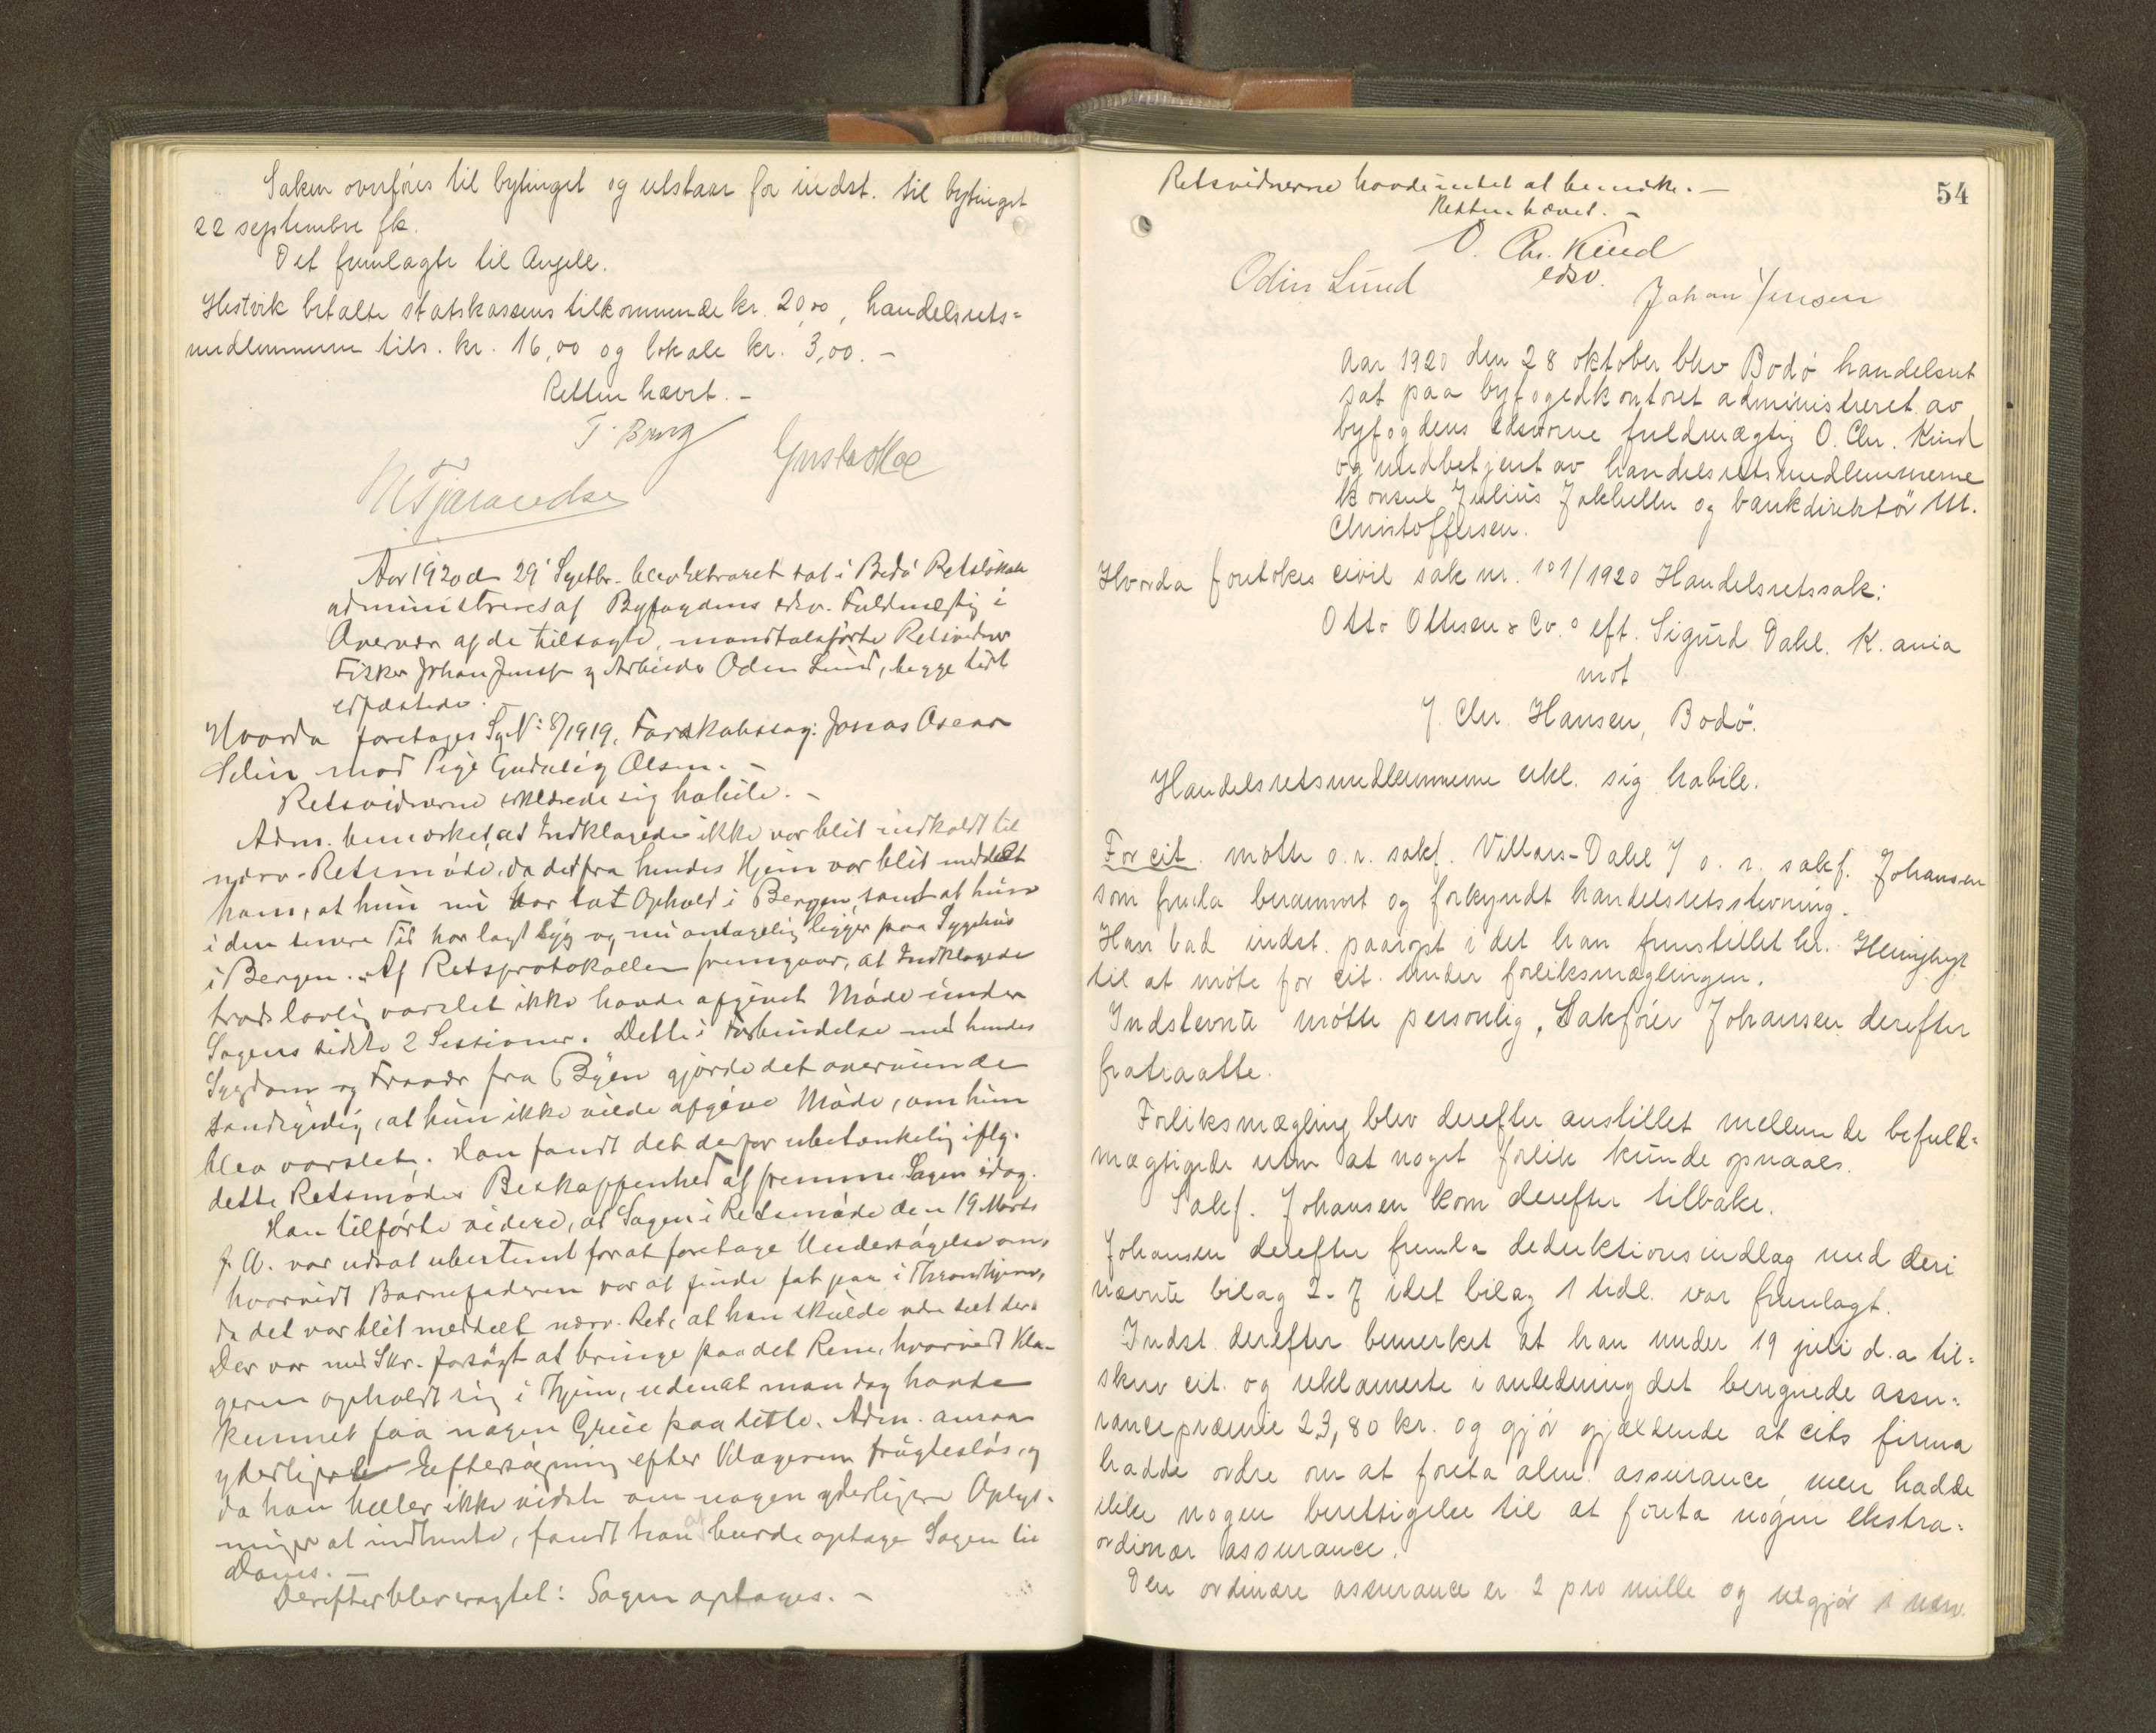 Saken overføres til bytinget og utstaar for indst. til bytinget
22 septembre fk.
Det fremlagte til Angell.
Hestvik betalte statskassens tilkommende kr. 20,00, handelsrets=
medlemmerne tils. kr. 16,00 og lokale kr. 3,00. -
Retten hævet. -
T. Borg
Gustav Moe
N. Tjærandsen
Aar 1920 d. 29' Septbr. blev Extraret sat i Bodø Retslokale
administreret af Byfogdens edsv. Fuldmægtig i
Overvær af de tilsagte, mandtalsførte Retsvidner
Fisker Johan Jensen og Arbeider Odin Lund, begge tidl
edfæstede. -
Hvorda foretages Sg. N: 8/1919, Farskabssag: Jonas Oscar
Selin mod Pige Gudalig Olsen. -
Retsvidnerne erklærede sig habile. -
Adm. bemærket, at Indklagede ikke var blit indkaldt til
nærv. Retsmøde, da det fra hendes Hjem var blit meddelt
ham, at hun nu har tat Ophold i Bergen, samt at hun
i den senere Tid har lagt syg og nu antagelig ligger paa Sygehus
i Bergen. Af Retsprotokollen fremgaar, at Indklagede
trods lovlig varslet ikke havde afgivet Møde under
Sagens sidste 2 Sessioner. Dette i Forbindelse med hendes
Sygdom og Fravær fra Byen gjorde det overveiende
sandsynlig, at hun ikke vilde afgive Møde, om hun
blev varslet. Han fandt det derfor ubetænkelig iflg.
dette Retsmødes Beskaffenhed at fremme Sagen idag.
Han tilførte videre, at Sagen i Retsmøde den 19 Marts
f. A. var udsat ubestemt for at foretage Undersøgelse om,
hvorvidt Barnefaderen var at finde fat paa i Throndhjem,
da det var blit meddelt nærv. Ret, at han skulde være set der.
Der var med Skr. forsøgt at bringe paa det Rene, hvorvidt Kla-
geren opholdt sig i Thjem, uden at man dog havde
kunnet faa nogen Greie paa dette. Adm. ansaa
yderligere Eftersøgning efter Klageren frugtesløs, og
da han heller ikke vidste om nogen yderligere Oplys-
ninger at indhente, fandt han at burde optage Sagen til
Doms. -
Derefter blev vagtet: Sagen optages. -
54
Retsvidnerne havde intet at bemærke. -
Retten hævet. -
O. Chr. Kind
edsv.
Odin Lund
Johan Jensen
Aar 1920 den 28 oktober blev Bodø handelsret
sat paa byfogedkontoret administreret av
byfogdens edsvorne fuldmægtig O. Chr. Kind
og medbetjent av handelsretsmedlemmerne
konsul Julius Jakhelln og bankdirektør M.
Christoffersen.
Hvorda foretokes civil sak nr. 101/1920 Handelsretssak:
Otto Ottesen & Co.s eft. Sigurd Dahl. K.ania
mot
J. Chr. Hansen, Bodø.
Handelsretsmedlemmerne erkl. sig habile.
For cit. møtte o.r. sakf. Villars-Dahl f o. r. sakf. Johansen
som fremla berammet og forkyndt handelsretsstevning.
Han bad indst. paaropt i det han fremstillet hr.
til at møte for cit. under forliksmæglingen.
Indstevnte møtte personlig, Sakfører Johansen derefter
fratraatte.
Forliksmægling blev derefter anstillet mellem de befuld=
mægtigede uten at noget forlik kunde opnaaes.
Sakf. Johansen kom derefter tilbake.
Johansen derefter fremla deduktionsindlag med deri
nævnte bilag 2-7 idet bilag 1 tidl. var fremlagt.
Indst. derefter bemerket at han under 19 juli d.a til=
skrev cit. og reklamerte i anledning det beregnede assu=
rancepræmie 23,80 kr. og gjør gjældende at cits firma
hadde ordre om at foreta alm. assurance, men hadde
ikke nogen berettigelse til at foreta nogen ekstra=
ordinær assurance.
Den ordinære assurance er 2 pro mille og utgjør i nærv.